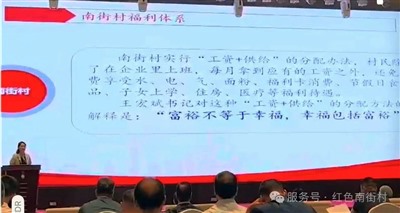 南街村福利体系
南街村实行“工资+供给”的分配办法，村民除
了在企业里上班，每月拿到应有的工资之外，还免
费享受水、电、气、面粉、福利卡消费、节假日食
品、子女上学、住房、医疗等福利待遇。
王宏斌书记对这种“工资+供给”的分配方法的
解释是：“富裕不等于幸福，幸福包括富裕”
南街村
服务号 · 红色南街村